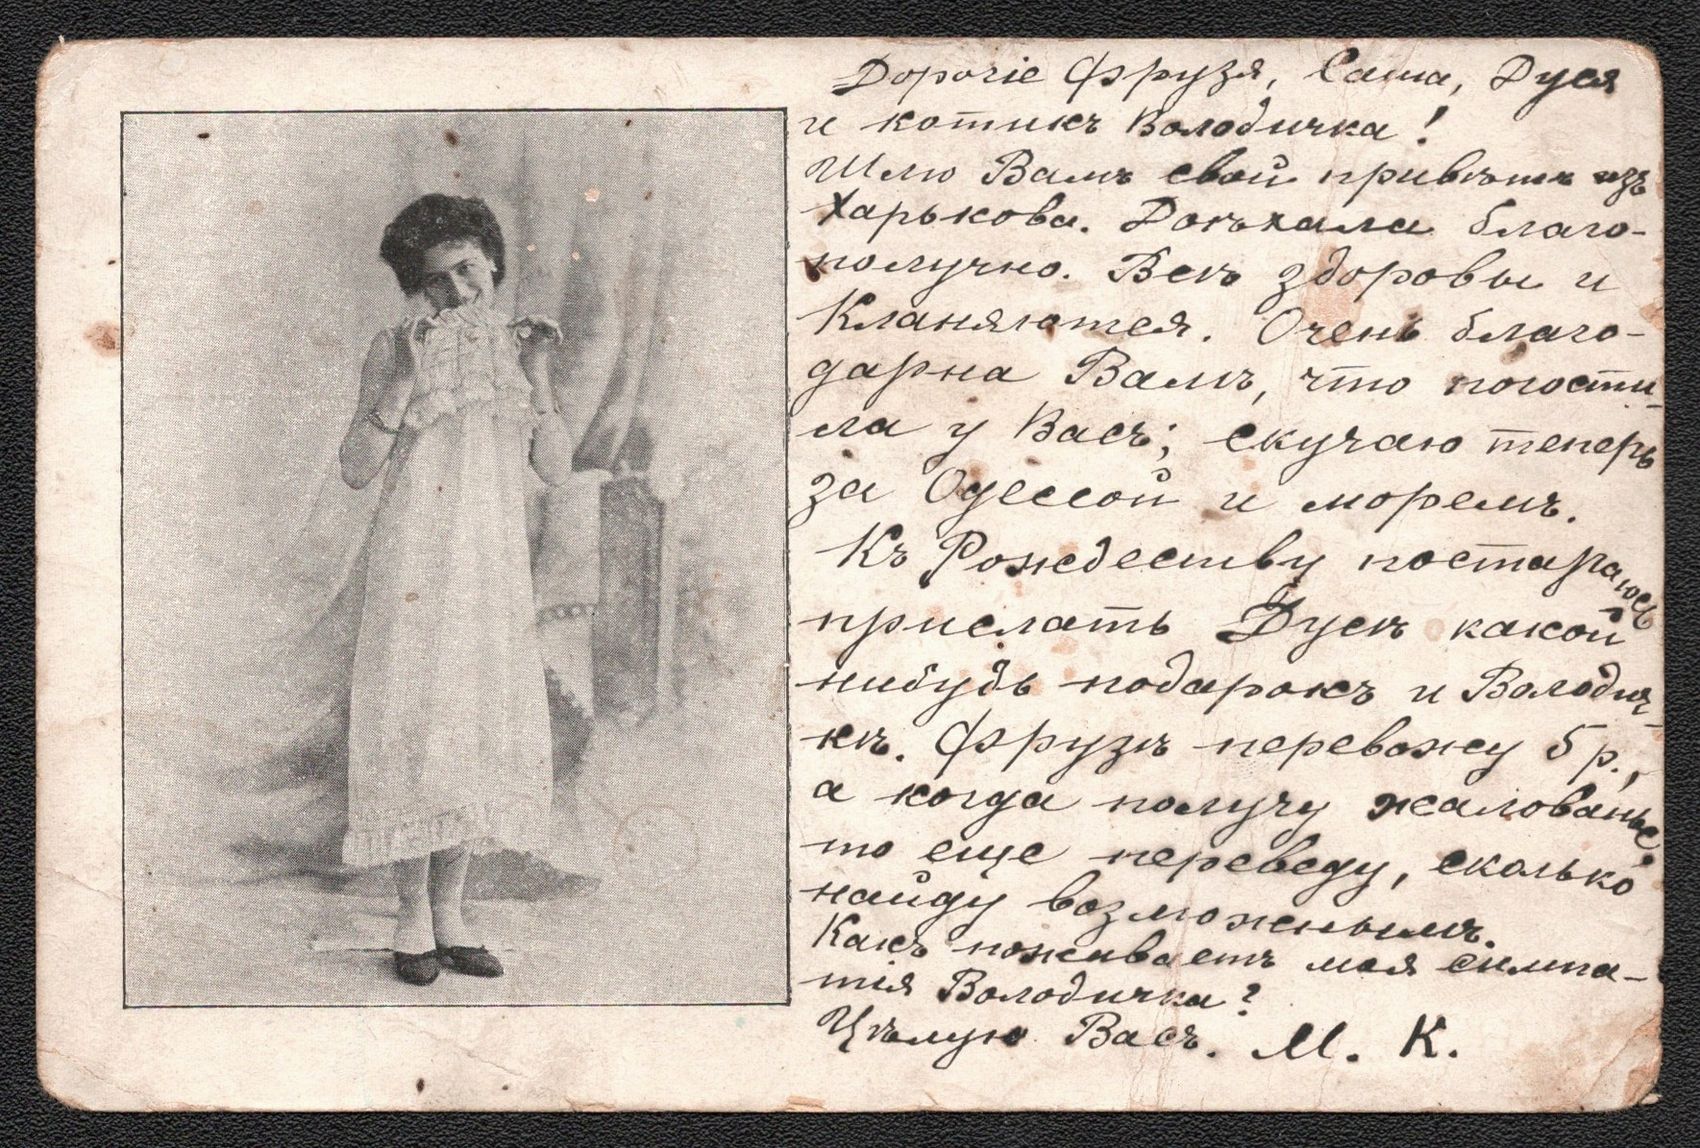 Дорогіе Фрузя, Саша, Дуся
и котикъ Володичка!
Шлю Вамъ свой привѣтъ изъ
Харькова. Доѣхала благо-
получно. Всѣ здоровы и
Кланяются. Очень благо-
дарна Вамъ, что погости-
ла у Васъ; скучаю теперь
за Одессой и моремъ.
Къ Рождеству постараюсь
прислать Дусѣ какой
нибудь подарокъ и Володич-
кѣ. Фрузѣ перевожу 5 р.,
а когда получу жалованье
то еще переведу, сколько
найду возможнымъ.
Какъ поживаетъ моя симпа-
тія Володичка?
Цѣлую Васъ. М. К.